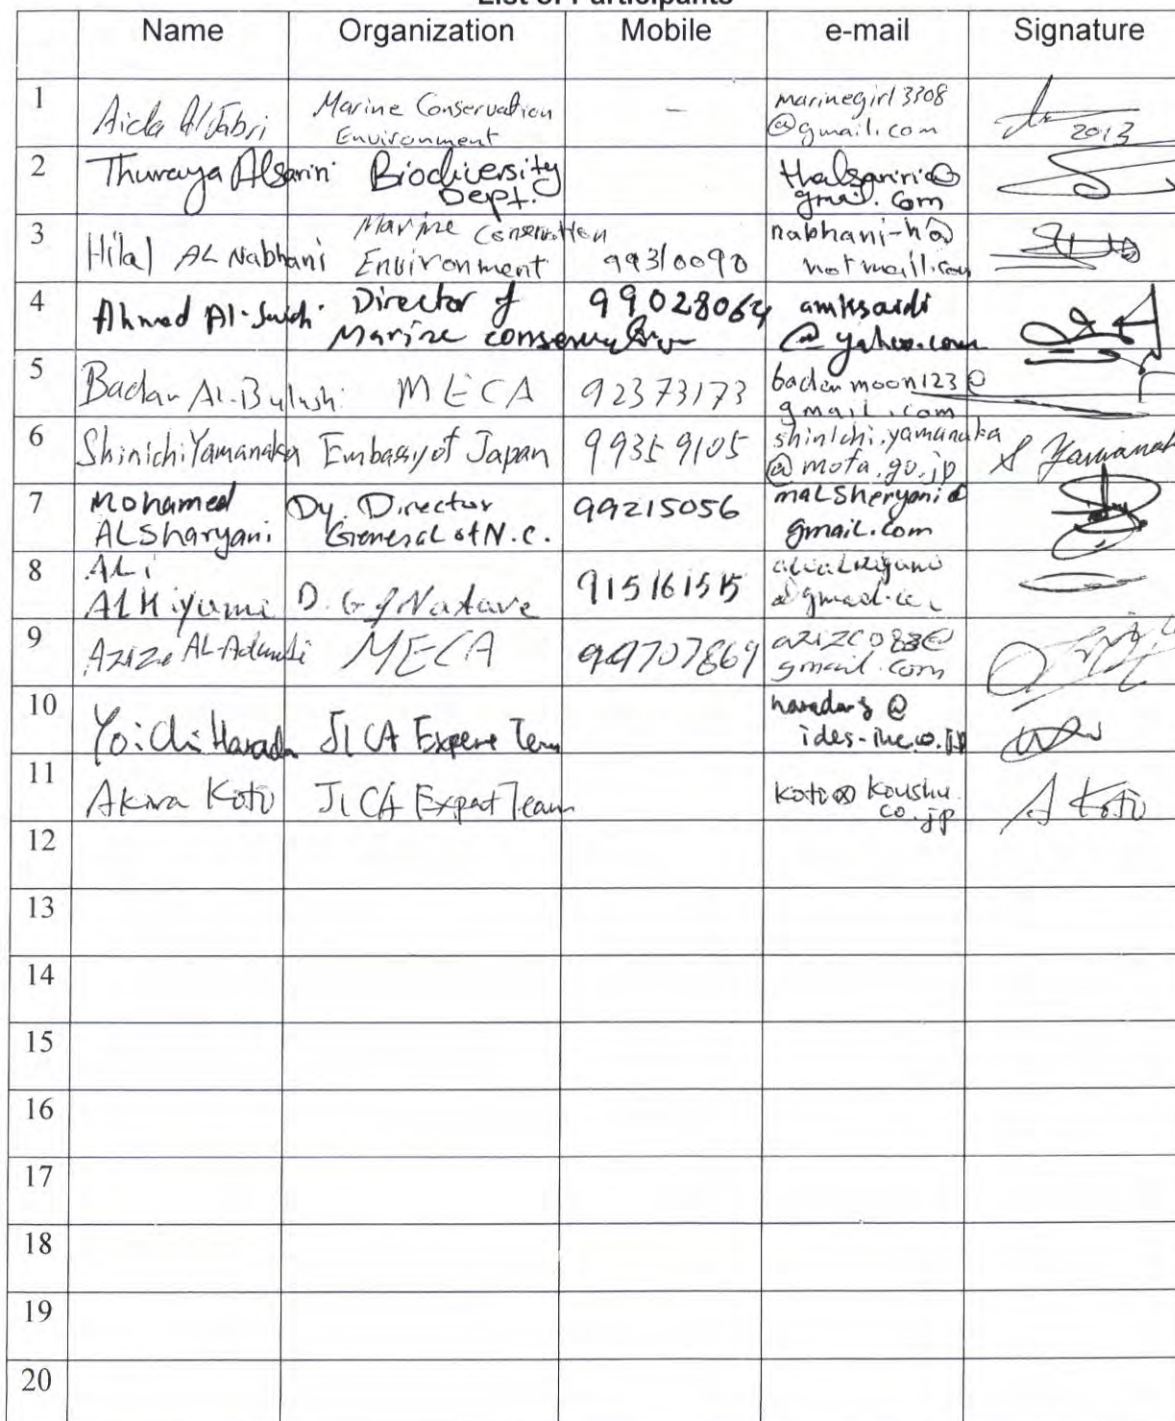 List of Participants
Name Organization Mobile e-mail Signature
1 Aida Al Jabri Marine Conservation Environment - marinegirl3308@gmail.com 2013
2 Thuraya Alsariri Biodiversity Dept. thalsariri@gmail.com
3 Hilal AL Nabhani Marine Conservation Environment 99310090 nabhani-h@hotmail.com
4 Ahmed Al- Director of Marine conservation 99028064 amksaidi@yahoo.com
5 Badar Al-Bulushi MECA 92373173 badermoon123@gmail.com
6 Shinichi Yamanaka Embassy of Japan 99359105 shinichi.yamanaka@mofa.go.jp S Yamanaka
7 Mohamed ALSharyani Dy. Director General of N.C. 99215056 malsheryani@gmail.com
8 ALi ALKiyumi D.G of Nature
9 Aziza AL- MECA azizc088@gmail.com
10 Yoichi Harada JICA Expert Team
11 Akira Koto JICA Expert Team koto@koushu.co.jp A Koto
12
13
14
15
16
17
18
19
20